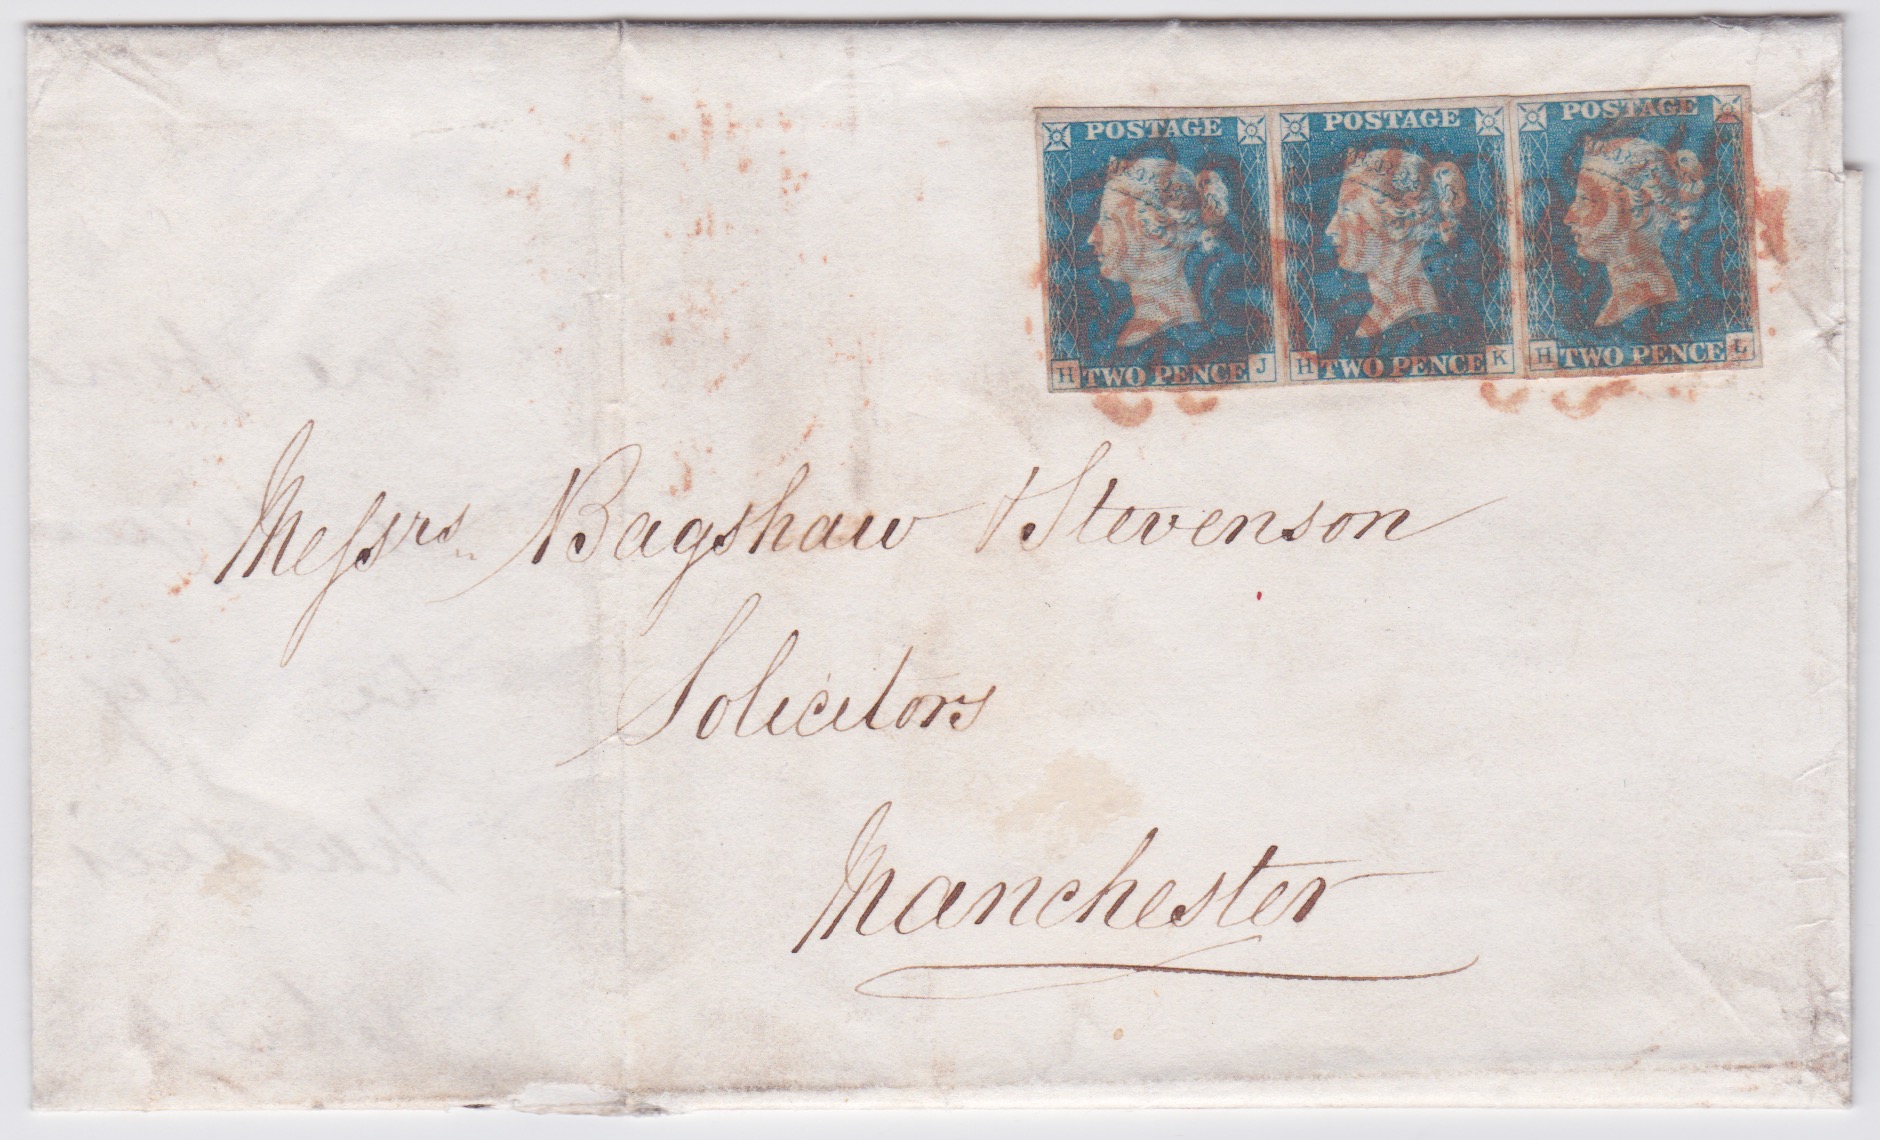 POSTAGE POSTAGE POSTAGE
H TWO PENCE J H TWO PENCE K H TWO PENCE L
Messrs Bagshaw & Stevenson
Solicitors
Manchester